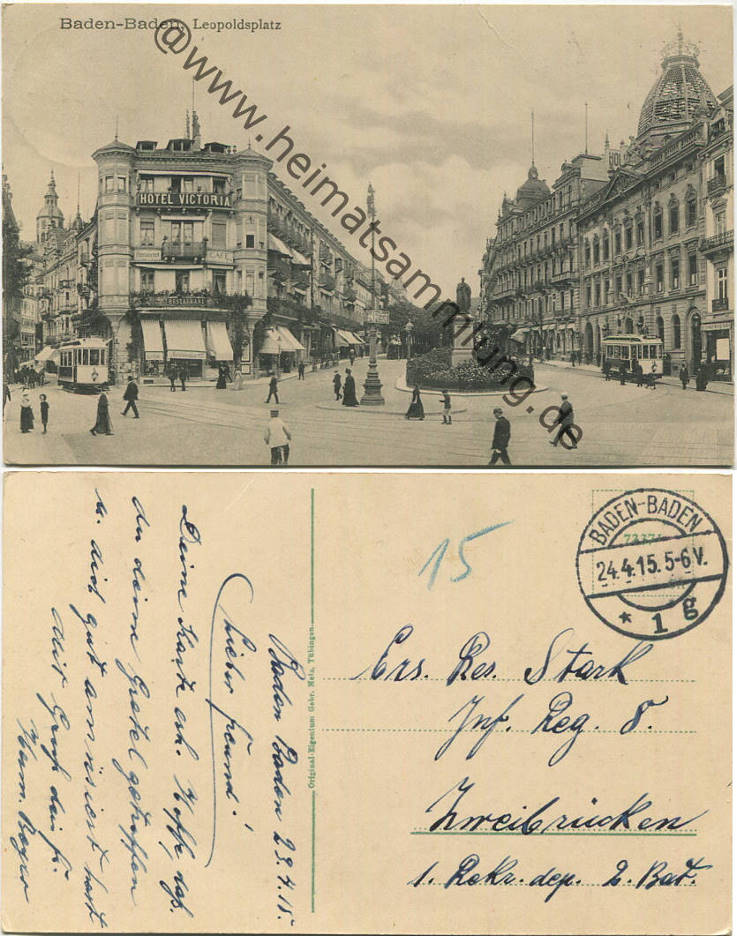 Baden-Baden, Leopoldsplatz
@www.heimatsammlung.de
HOTEL VICTORIA
CAFÉ
RESTAURANT
BADEN-BADEN
24.4.15. 5-6 V.
* 1 g
15
Ers. Res. Stark
Inf. Reg. 8.
Zweibrücken
1. Rekr. dep. 2. Bat.
Original-Eigentum Gebr. Metz, Tübingen
Baden Baden 23.4.15.
Lieber Freund!
Deine Karte erh. Hoffe, daß
du deine Gretel getroffen
u. dich gut amüsiert hast
Mit Gruß dein Fr.
Ham. Beyer